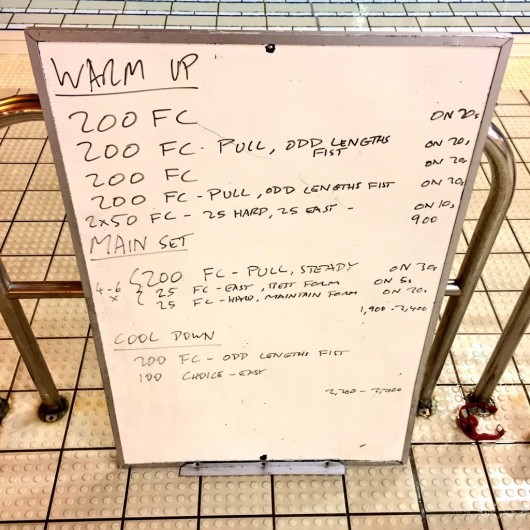 WARM UP
200 FC ON 20s
200 FC - PULL, ODD LENGTHS FIST ON 20s
200 FC ON 20s
200 FC - PULL, ODD LENGTHS FIST ON 20s
2x50 FC - 25 HARD, 25 EASY - ON 10s
900
MAIN SET
4-6 x { 200 FC - PULL, STEADY ON 30s
25 FC - EASY, BEST FORM ON 5s
25 FC - HARD, MAINTAIN FORM ON 20s
1,900 - 2,400
COOL DOWN
200 FC - ODD LENGTHS FIST
100 CHOICE - EASY